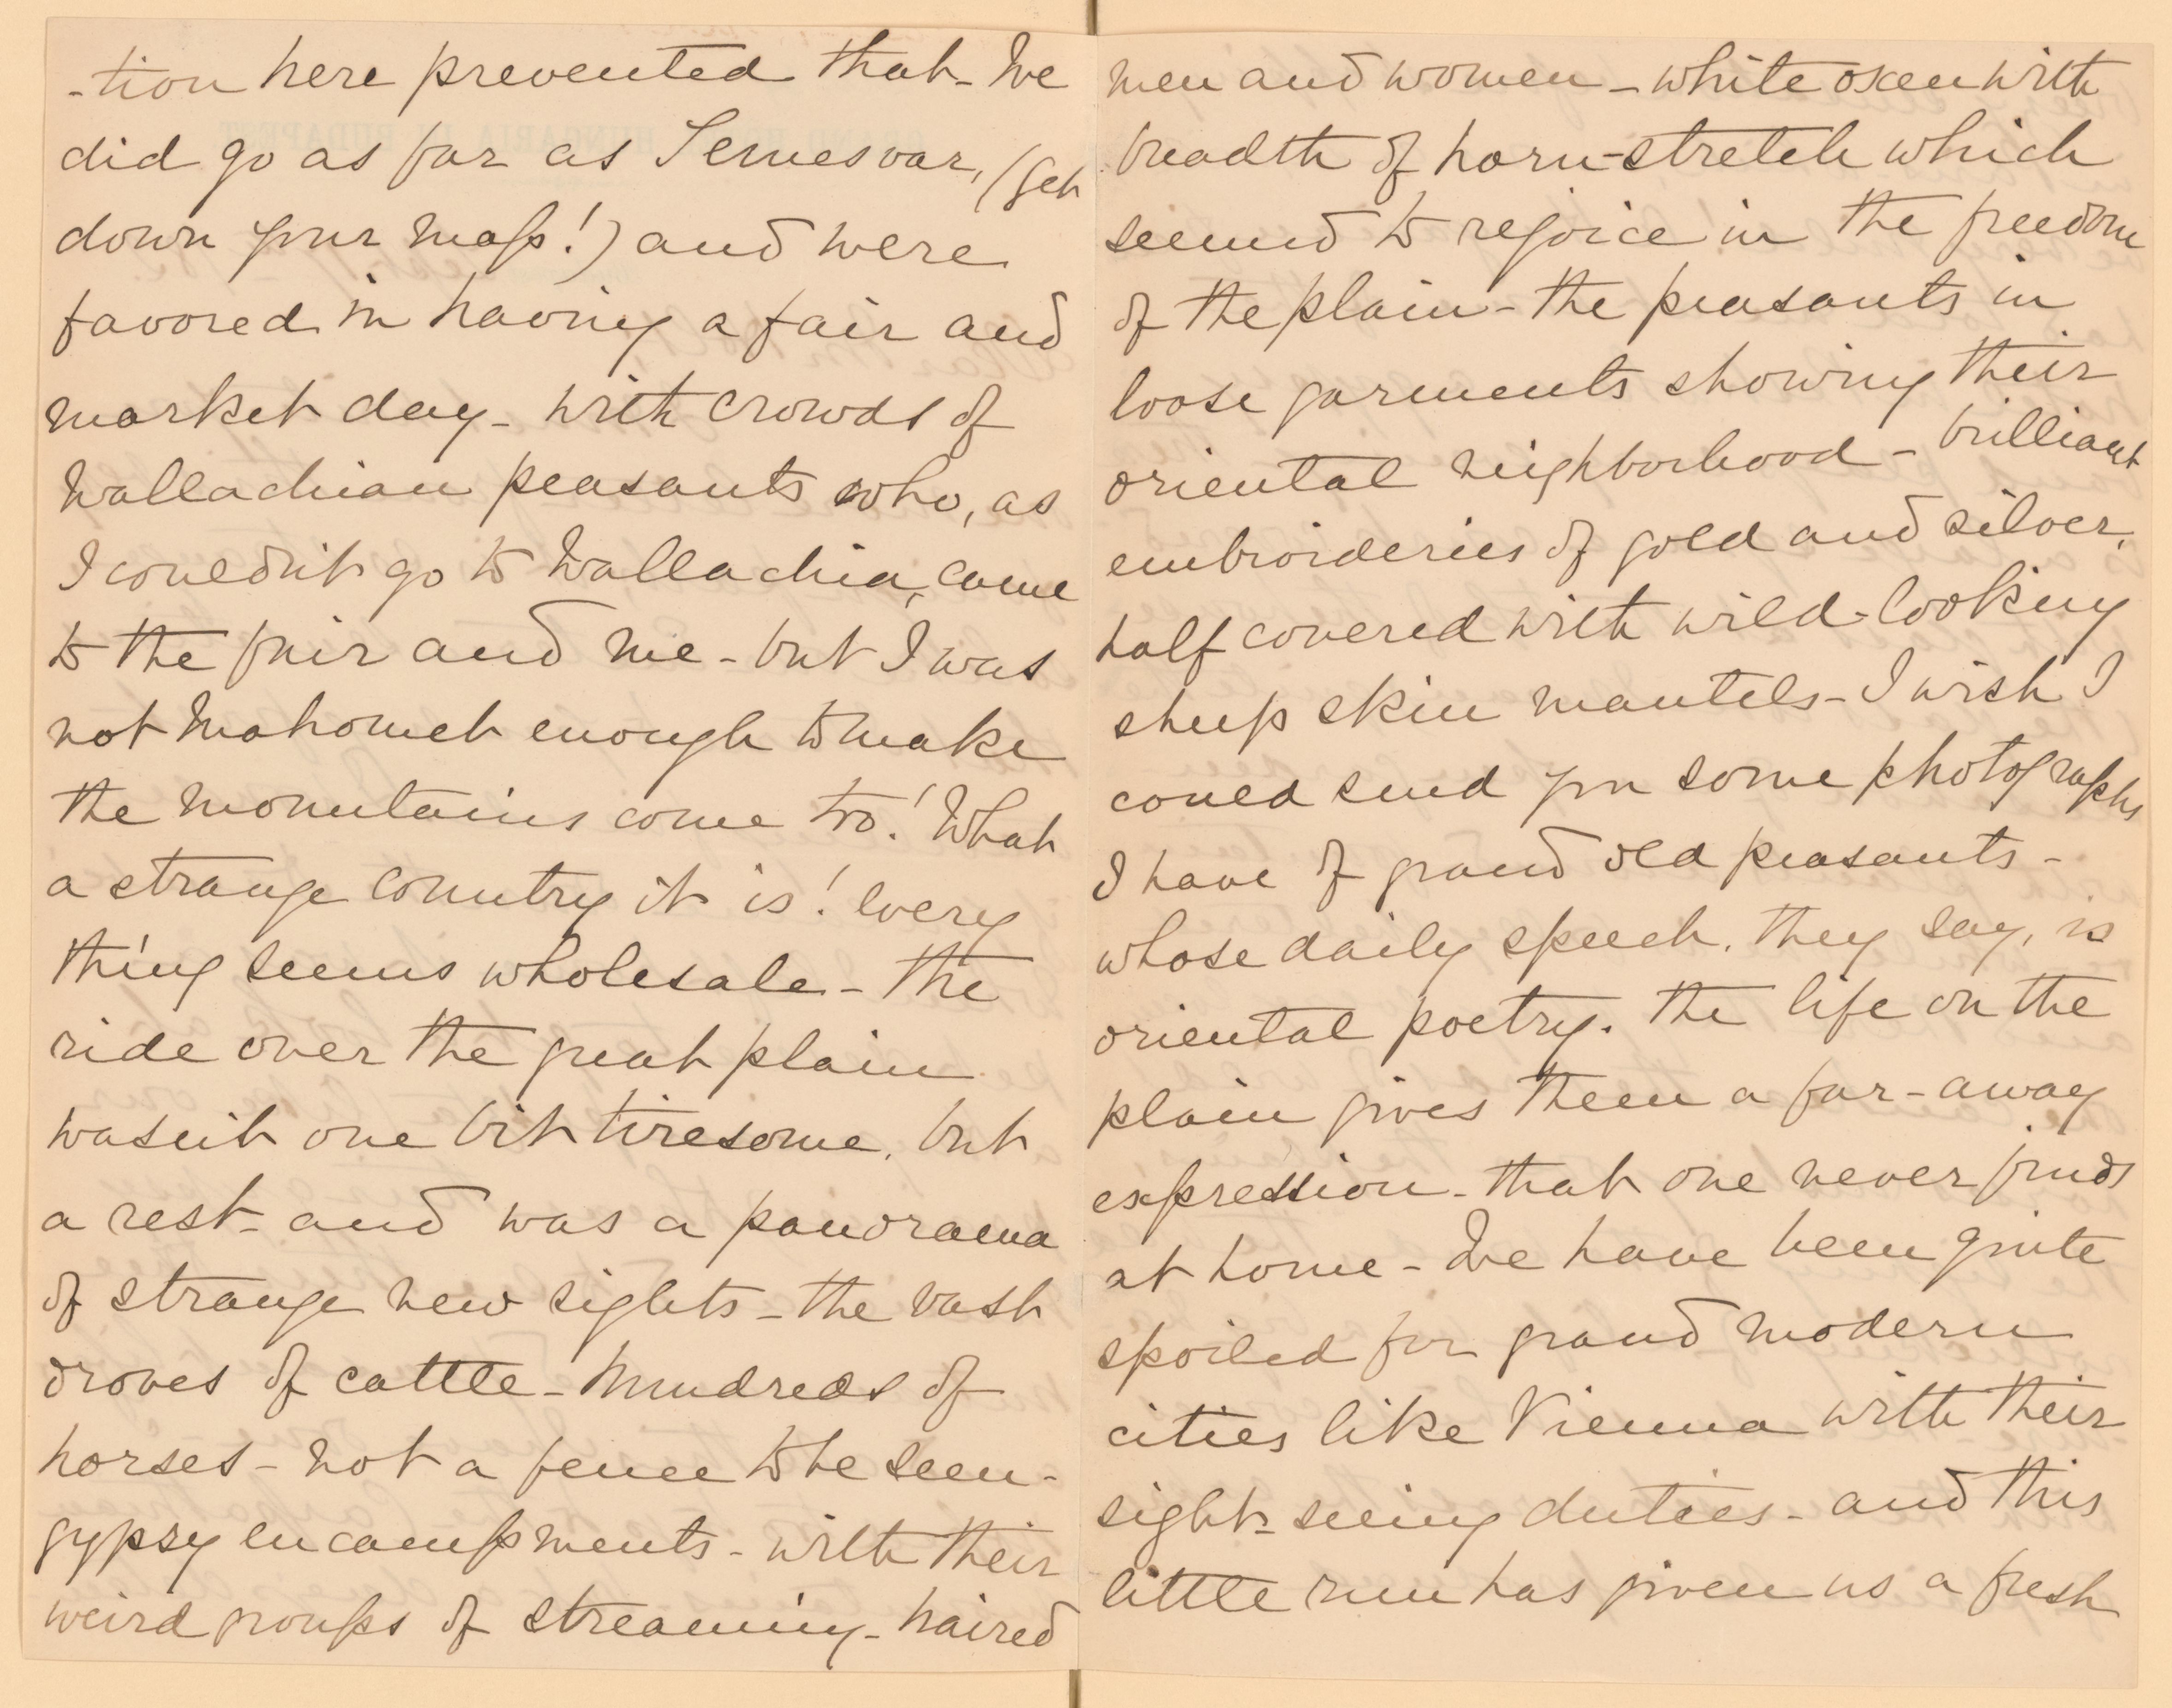 -tion here prevented that - We
did go as far as Temesvar, (get
down your map!) and were
favored in having a fair and
market day - with crowds of
Wallachian peasants who, as
I couldn't go to Wallachia, came
to the fair and me - but I was
not Mahomet enough to make
the mountains come too! What
a strange country it is! Every
thing seems wholesale - the
ride over the great plain
wasn't one bit tiresome, but
a rest - and was a panorama
of strange new sights - the vast
droves of cattle - hundreds of
horses - not a fence to be seen -
gypsy encampments - with their
weird groups of streaming-haired
men and women - white oxen with
breadth of horn-stretch which
seemed to rejoice in the freedom
of the plain - the peasants in
loose garments showing their
oriental neighborhood - brilliant
embroideries of gold and silver,
half covered with wild-looking
sheep skin mantels - I wish I
could send you some photographs
I have of grand old peasants -
whose daily speech, they say, is
oriental poetry. The life on the
plain gives them a far-away
expression - that one never finds
at home - We have been quite
spoiled for grand modern
cities like Vienna with their
sight-seeing duties - and this
little run has given us a fresh